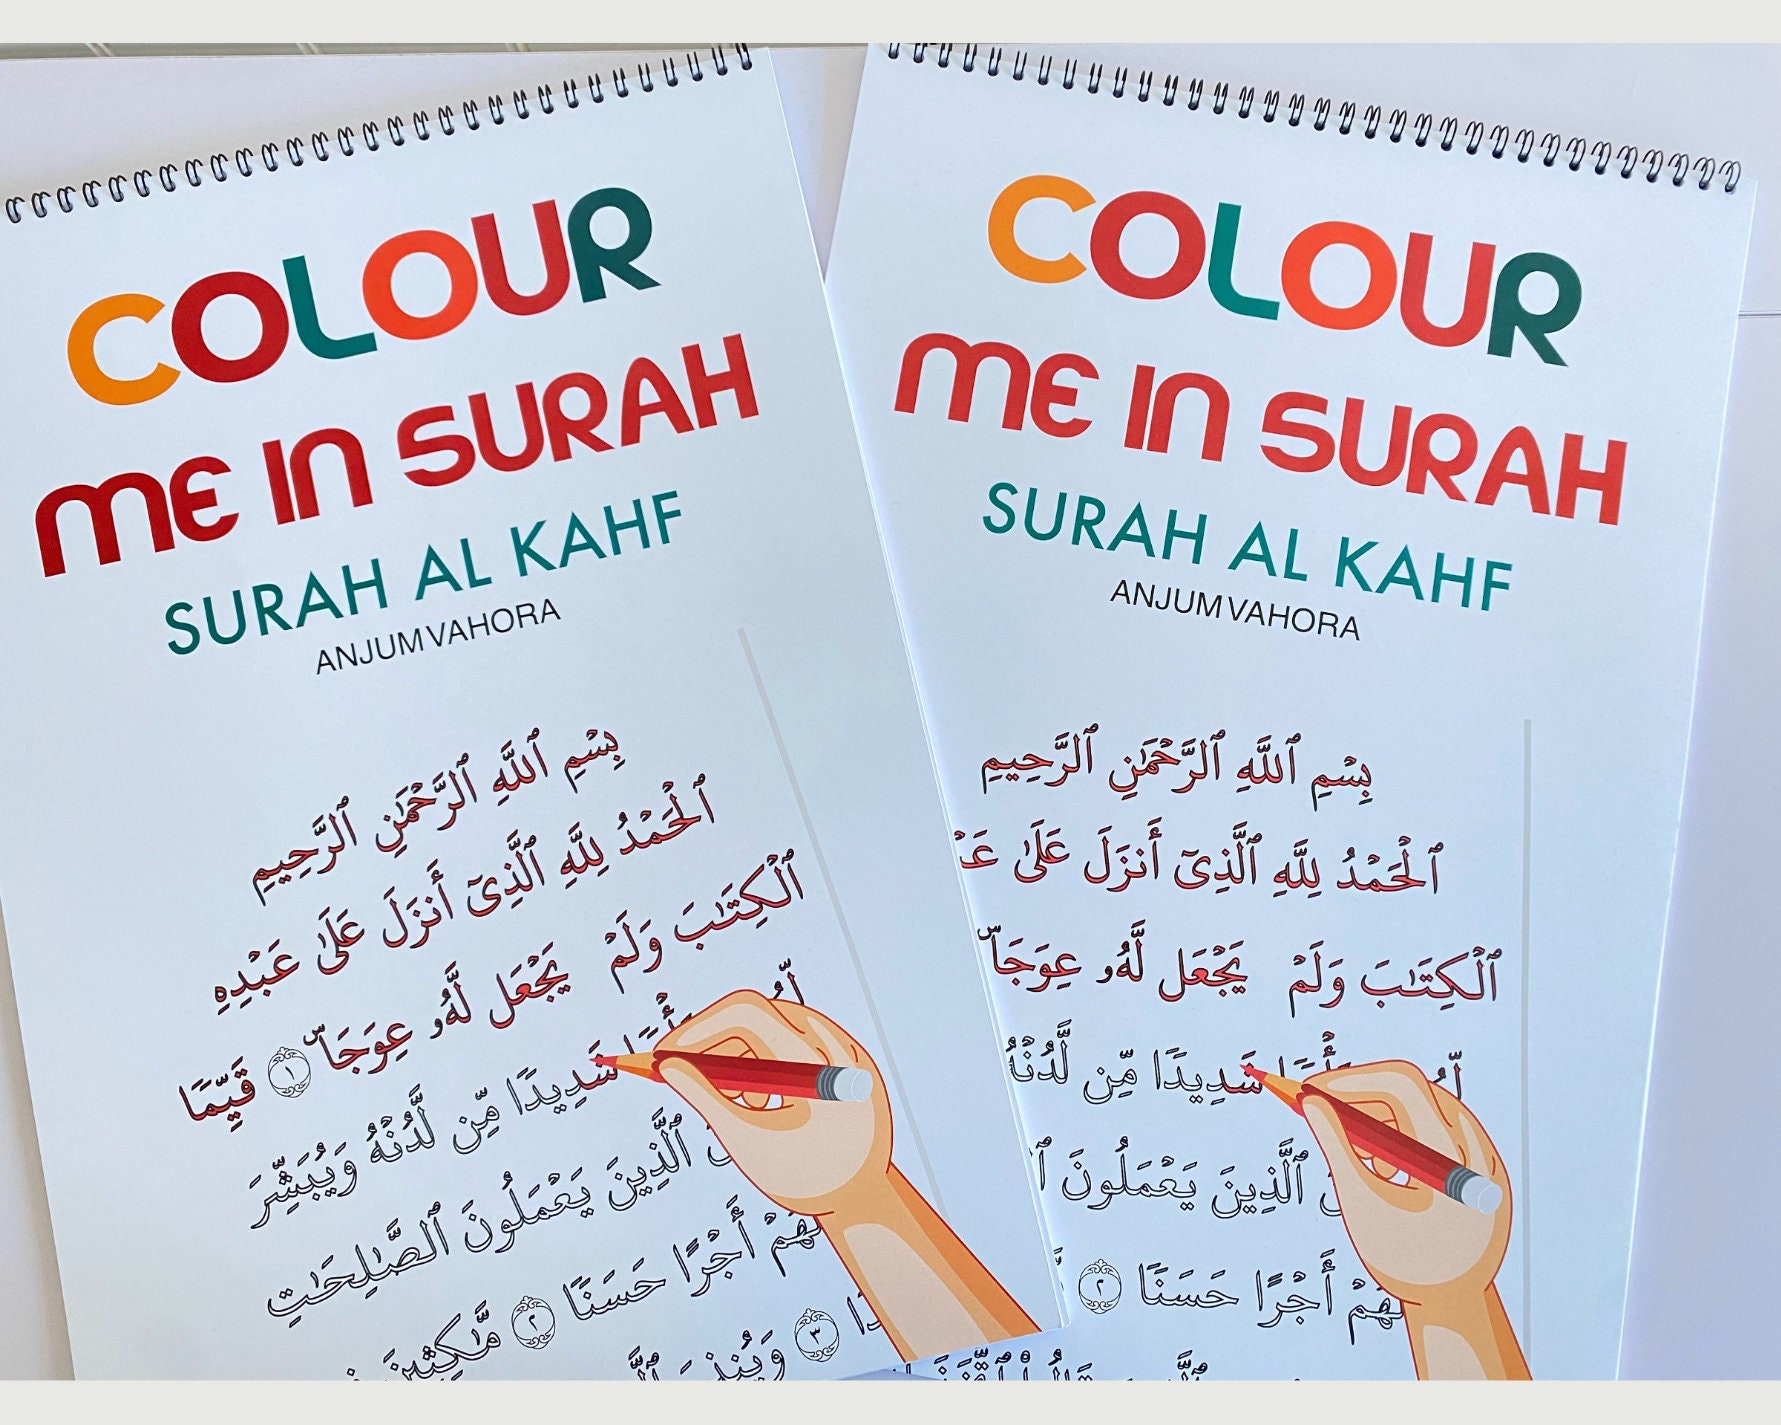 COLOUR
ME IN SURAH
SURAH AL KAHF
ANJUM VAHORA
بِسْمِ ٱللَّهِ ٱلرَّحْمَٰنِ ٱلرَّحِيمِ
ٱلْحَمْدُ لِلَّهِ ٱلَّذِىٓ أَنزَلَ عَلَىٰ عَبْدِهِ
ٱلْكِتَٰبَ وَلَمْ يَجْعَل لَّهُۥ عِوَجَاۜ ١ قَيِّمًا
شَدِيدًا مِّن لَّدُنْهُ وَيُبَشِّرَ
ٱلَّذِينَ يَعْمَلُونَ ٱلصَّٰلِحَٰتِ
لَهُمْ أَجْرًا حَسَنًا ٢ مَّٰكِثِينَ
٣ وَيُنذِرَ
COLOUR
ME IN SURAH
SURAH AL KAHF
ANJUM VAHORA
بِسْمِ ٱللَّهِ ٱلرَّحْمَٰنِ ٱلرَّحِيمِ
ٱلْحَمْدُ لِلَّهِ ٱلَّذِىٓ أَنزَلَ عَلَىٰ
ٱلْكِتَٰبَ وَلَمْ يَجْعَل لَّهُۥ عِوَجَاۜ
شَدِيدًا مِّن لَّدُنْهُ
ٱلَّذِينَ يَعْمَلُونَ
لَهُمْ أَجْرًا حَسَنًا ٢